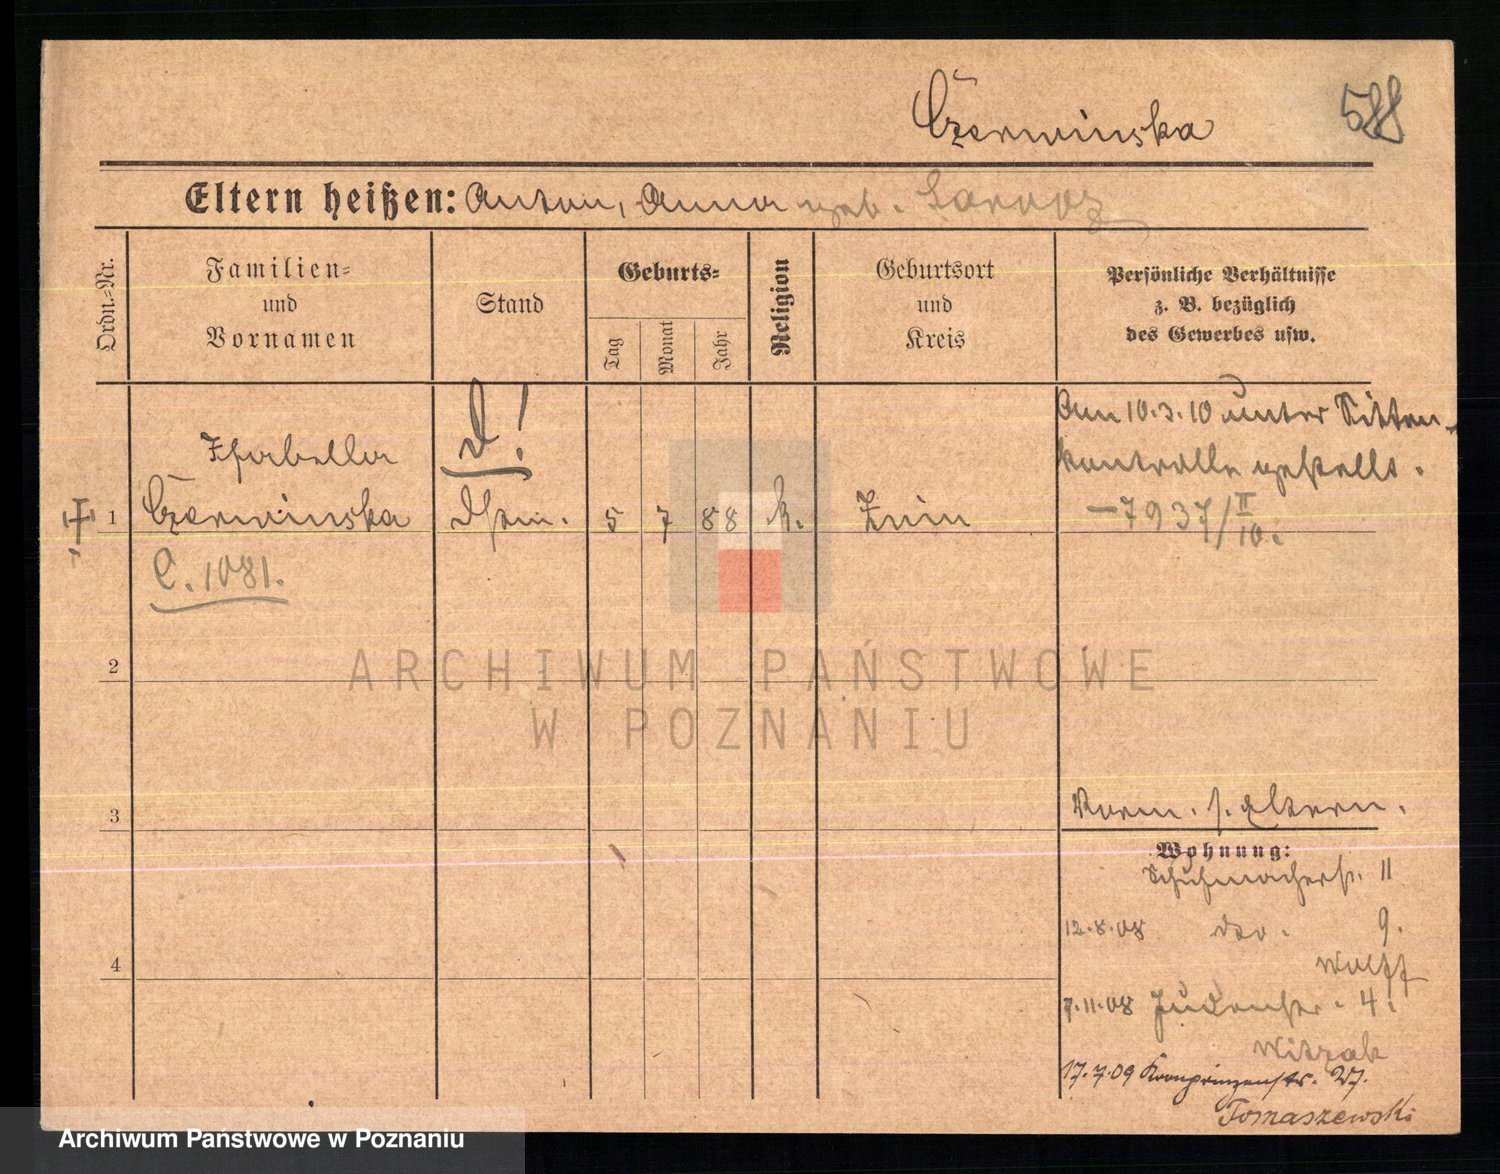 Czerwinska
588
Eltern heißen: Anton, Anna geb.
Ordn.-Nr.
Familien-
und
Vornamen
Stand
Geburts-
Tag
Monat
Jahr
Religion
Geburtsort
und
Kreis
Persönliche Verhältnisse
z. B. bezüglich
des Gewerbes usw.
D!
Am 10.3.10 unter Sitten-
kontrolle gestellt.
Isabella
1 Czerwinska 5 7 88 k. Znin
-7937/II 10.
C. 1081.
2
3
s. Eltern.
Wohnung:
Schuhmacherstr. 11
12.8.08 dto. 9.
Wolff
4
7.11.08 Judenstr. 4.
Witzak
17.7.09 Kronprinzenstr. 27.
Tomaszewski
ARCHIWUM PAŃSTWOWE
W POZNANIU
Archiwum Państwowe w Poznaniu